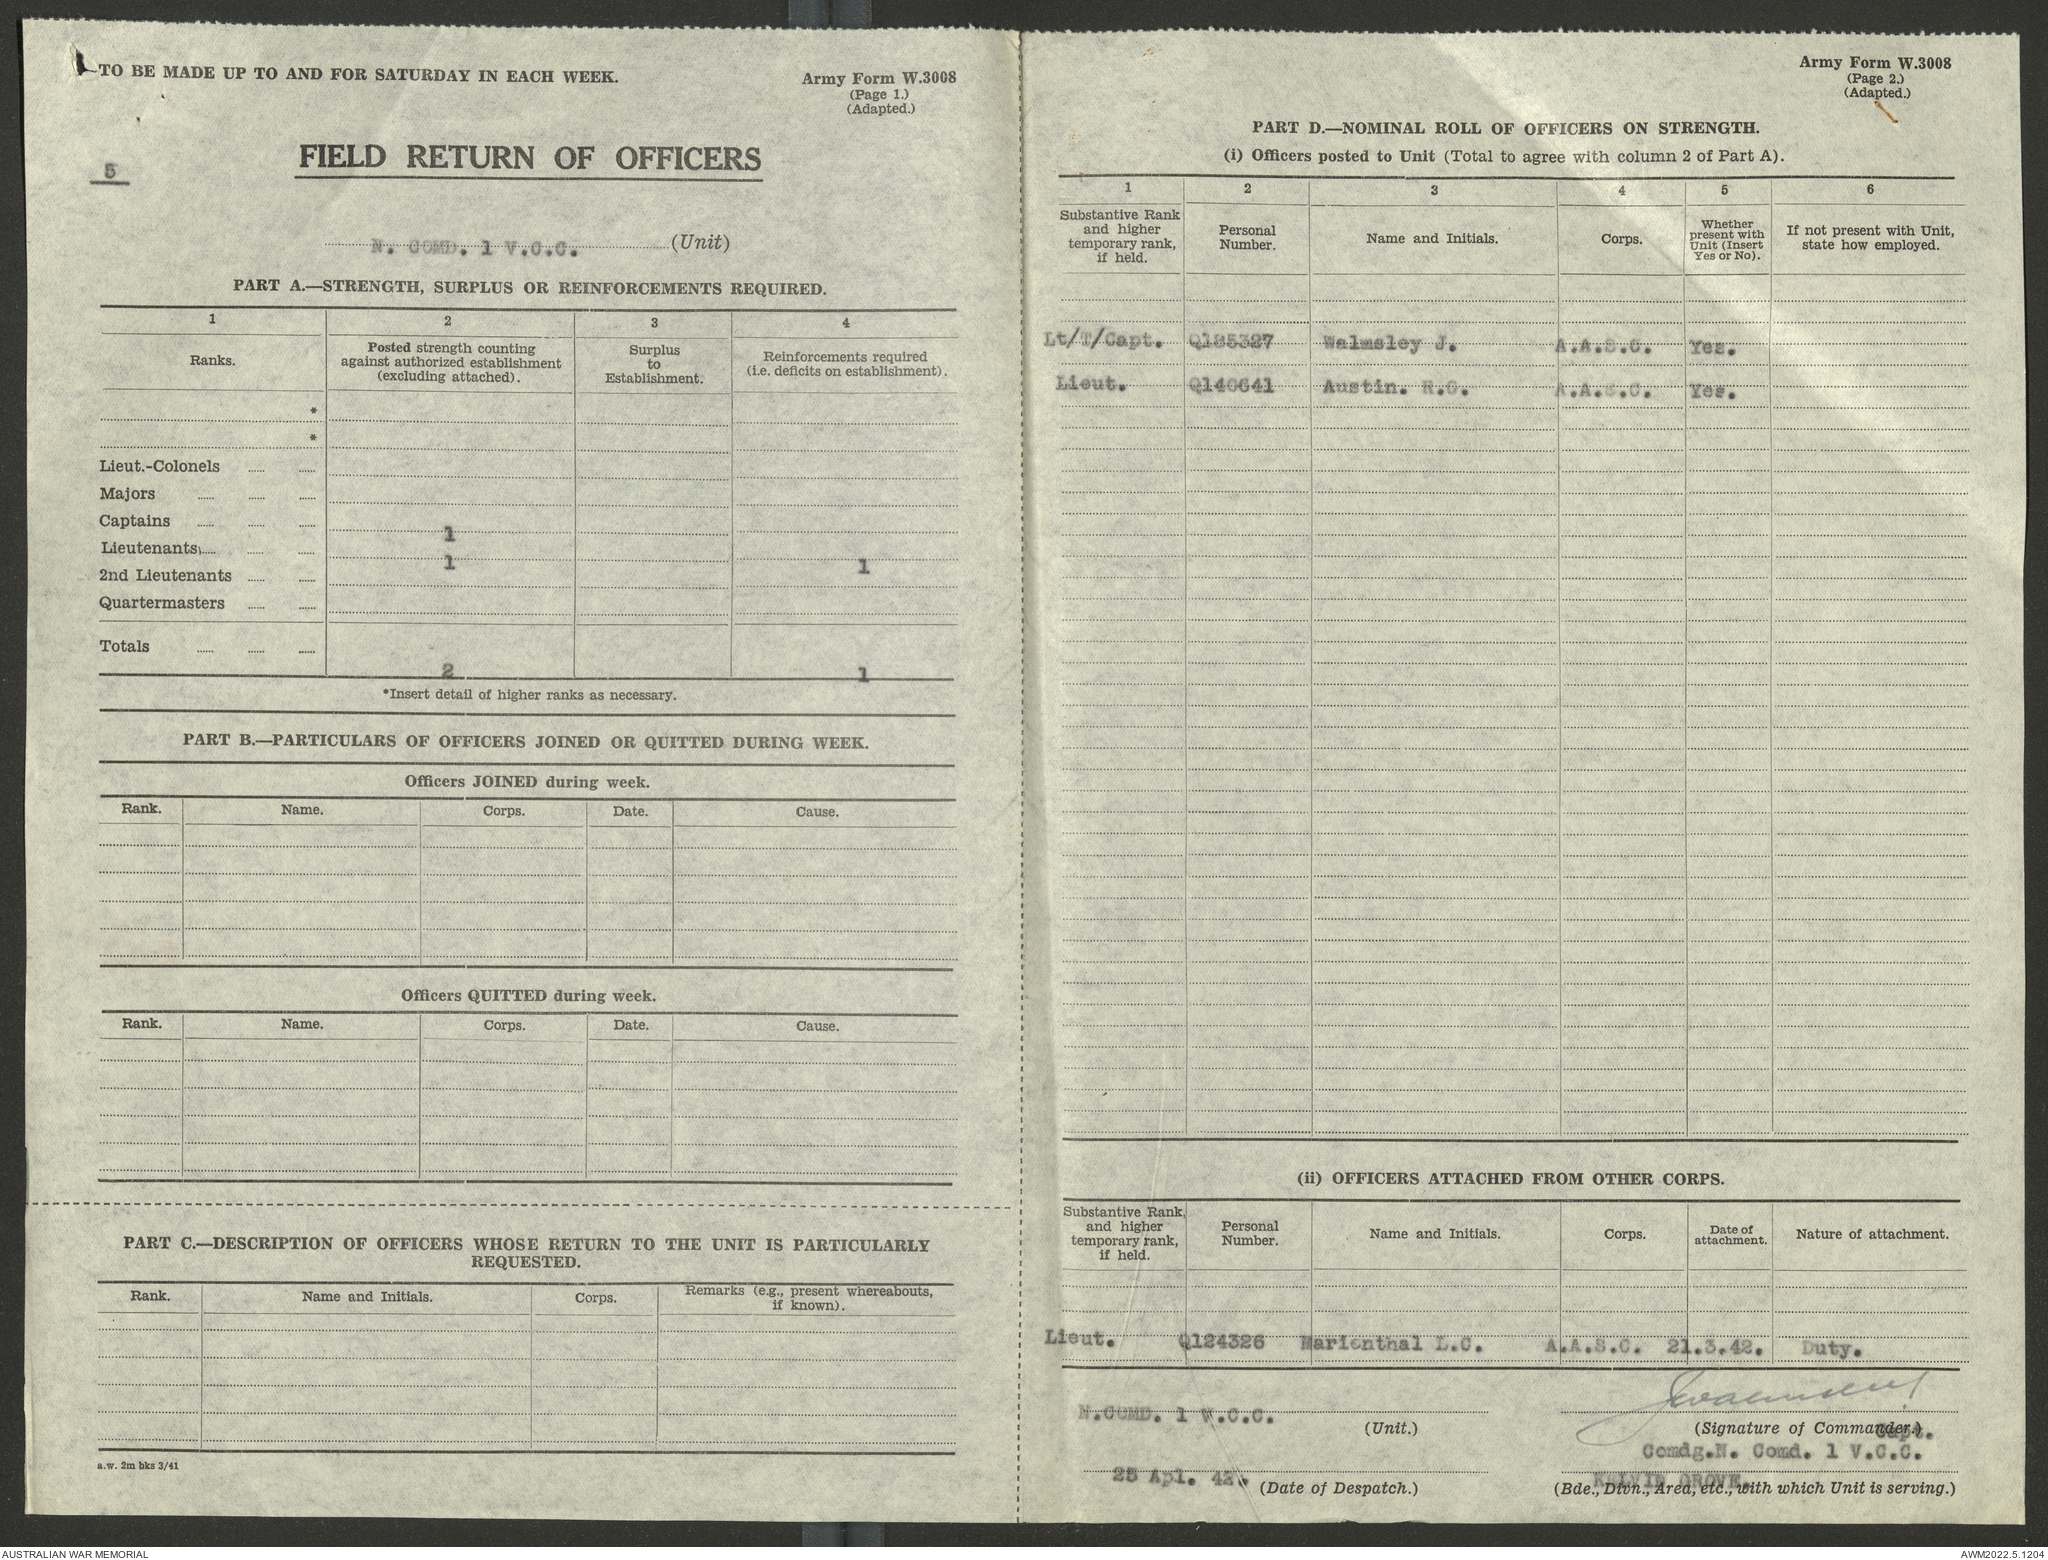 TO BE MADE UP TO AND FOR SATURDAY IN EACH WEEK.
Army Form W.3008
(Page 1.)
(Adapted.)
5
FIELD RETURN OF OFFICERS
N. COMD. 1 V.C.C. (Unit)
PART A.—STRENGTH, SURPLUS OR REINFORCEMENTS REQUIRED.
1 2 3 4
Ranks.
Posted strength counting
against authorized establishment
(excluding attached).
Surplus
to
Establishment.
Reinforcements required
(i.e. deficits on establishment).
*
*
Lieut.-Colonels
Majors
Captains 1
Lieutenants 1 1
2nd Lieutenants
Quartermasters
Totals 2 1
*Insert detail of higher ranks as necessary.
PART B.—PARTICULARS OF OFFICERS JOINED OR QUITTED DURING WEEK.
Officers JOINED during week.
Rank. Name. Corps. Date. Cause.
Officers QUITTED during week.
Rank. Name. Corps. Date. Cause.
PART C.—DESCRIPTION OF OFFICERS WHOSE RETURN TO THE UNIT IS PARTICULARLY
REQUESTED.
Rank. Name and Initials. Corps. Remarks (e.g., present whereabouts,
if known).
a.w. 2m bks 3/41
Army Form W.3008
(Page 2.)
(Adapted.)
PART D.—NOMINAL ROLL OF OFFICERS ON STRENGTH.
(i) Officers posted to Unit (Total to agree with column 2 of Part A).
1 2 3 4 5 6
Substantive Rank
and higher
temporary rank,
if held.
Personal
Number.
Name and Initials.
Corps.
Whether
present with
Unit (Insert
Yes or No).
If not present with Unit,
state how employed.
Lt/T/Capt. Q185327 Walmsley J. A.A.S.C. Yes.
Lieut. Q140641 Austin. H.G. A.A.S.C. Yes.
(ii) OFFICERS ATTACHED FROM OTHER CORPS.
Substantive Rank,
and higher
temporary rank,
if held.
Personal
Number.
Name and Initials.
Corps.
Date of
attachment.
Nature of attachment.
Lieut. Q124326 Marienthal L.C. A.A.S.C. 21.3.42. Duty.
JWalmsley
N.COMD. 1 V.C.C. (Unit.)
(Signature of Commander.) Capt.
Comdg.N. Comd. 1 V.C.C.
25 Apl. 42. (Date of Despatch.)
KELVIN GROVE.
(Bde., Divn., Area, etc., with which Unit is serving.)
AUSTRALIAN WAR MEMORIAL
AWM2022.5.1204